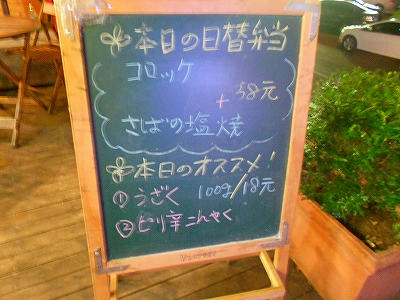 本日の日替弁当
コロッケ
+ 38元
さばの塩焼
本日のオススメ!
①うざく 100g/18元
②ピリ辛こんやく